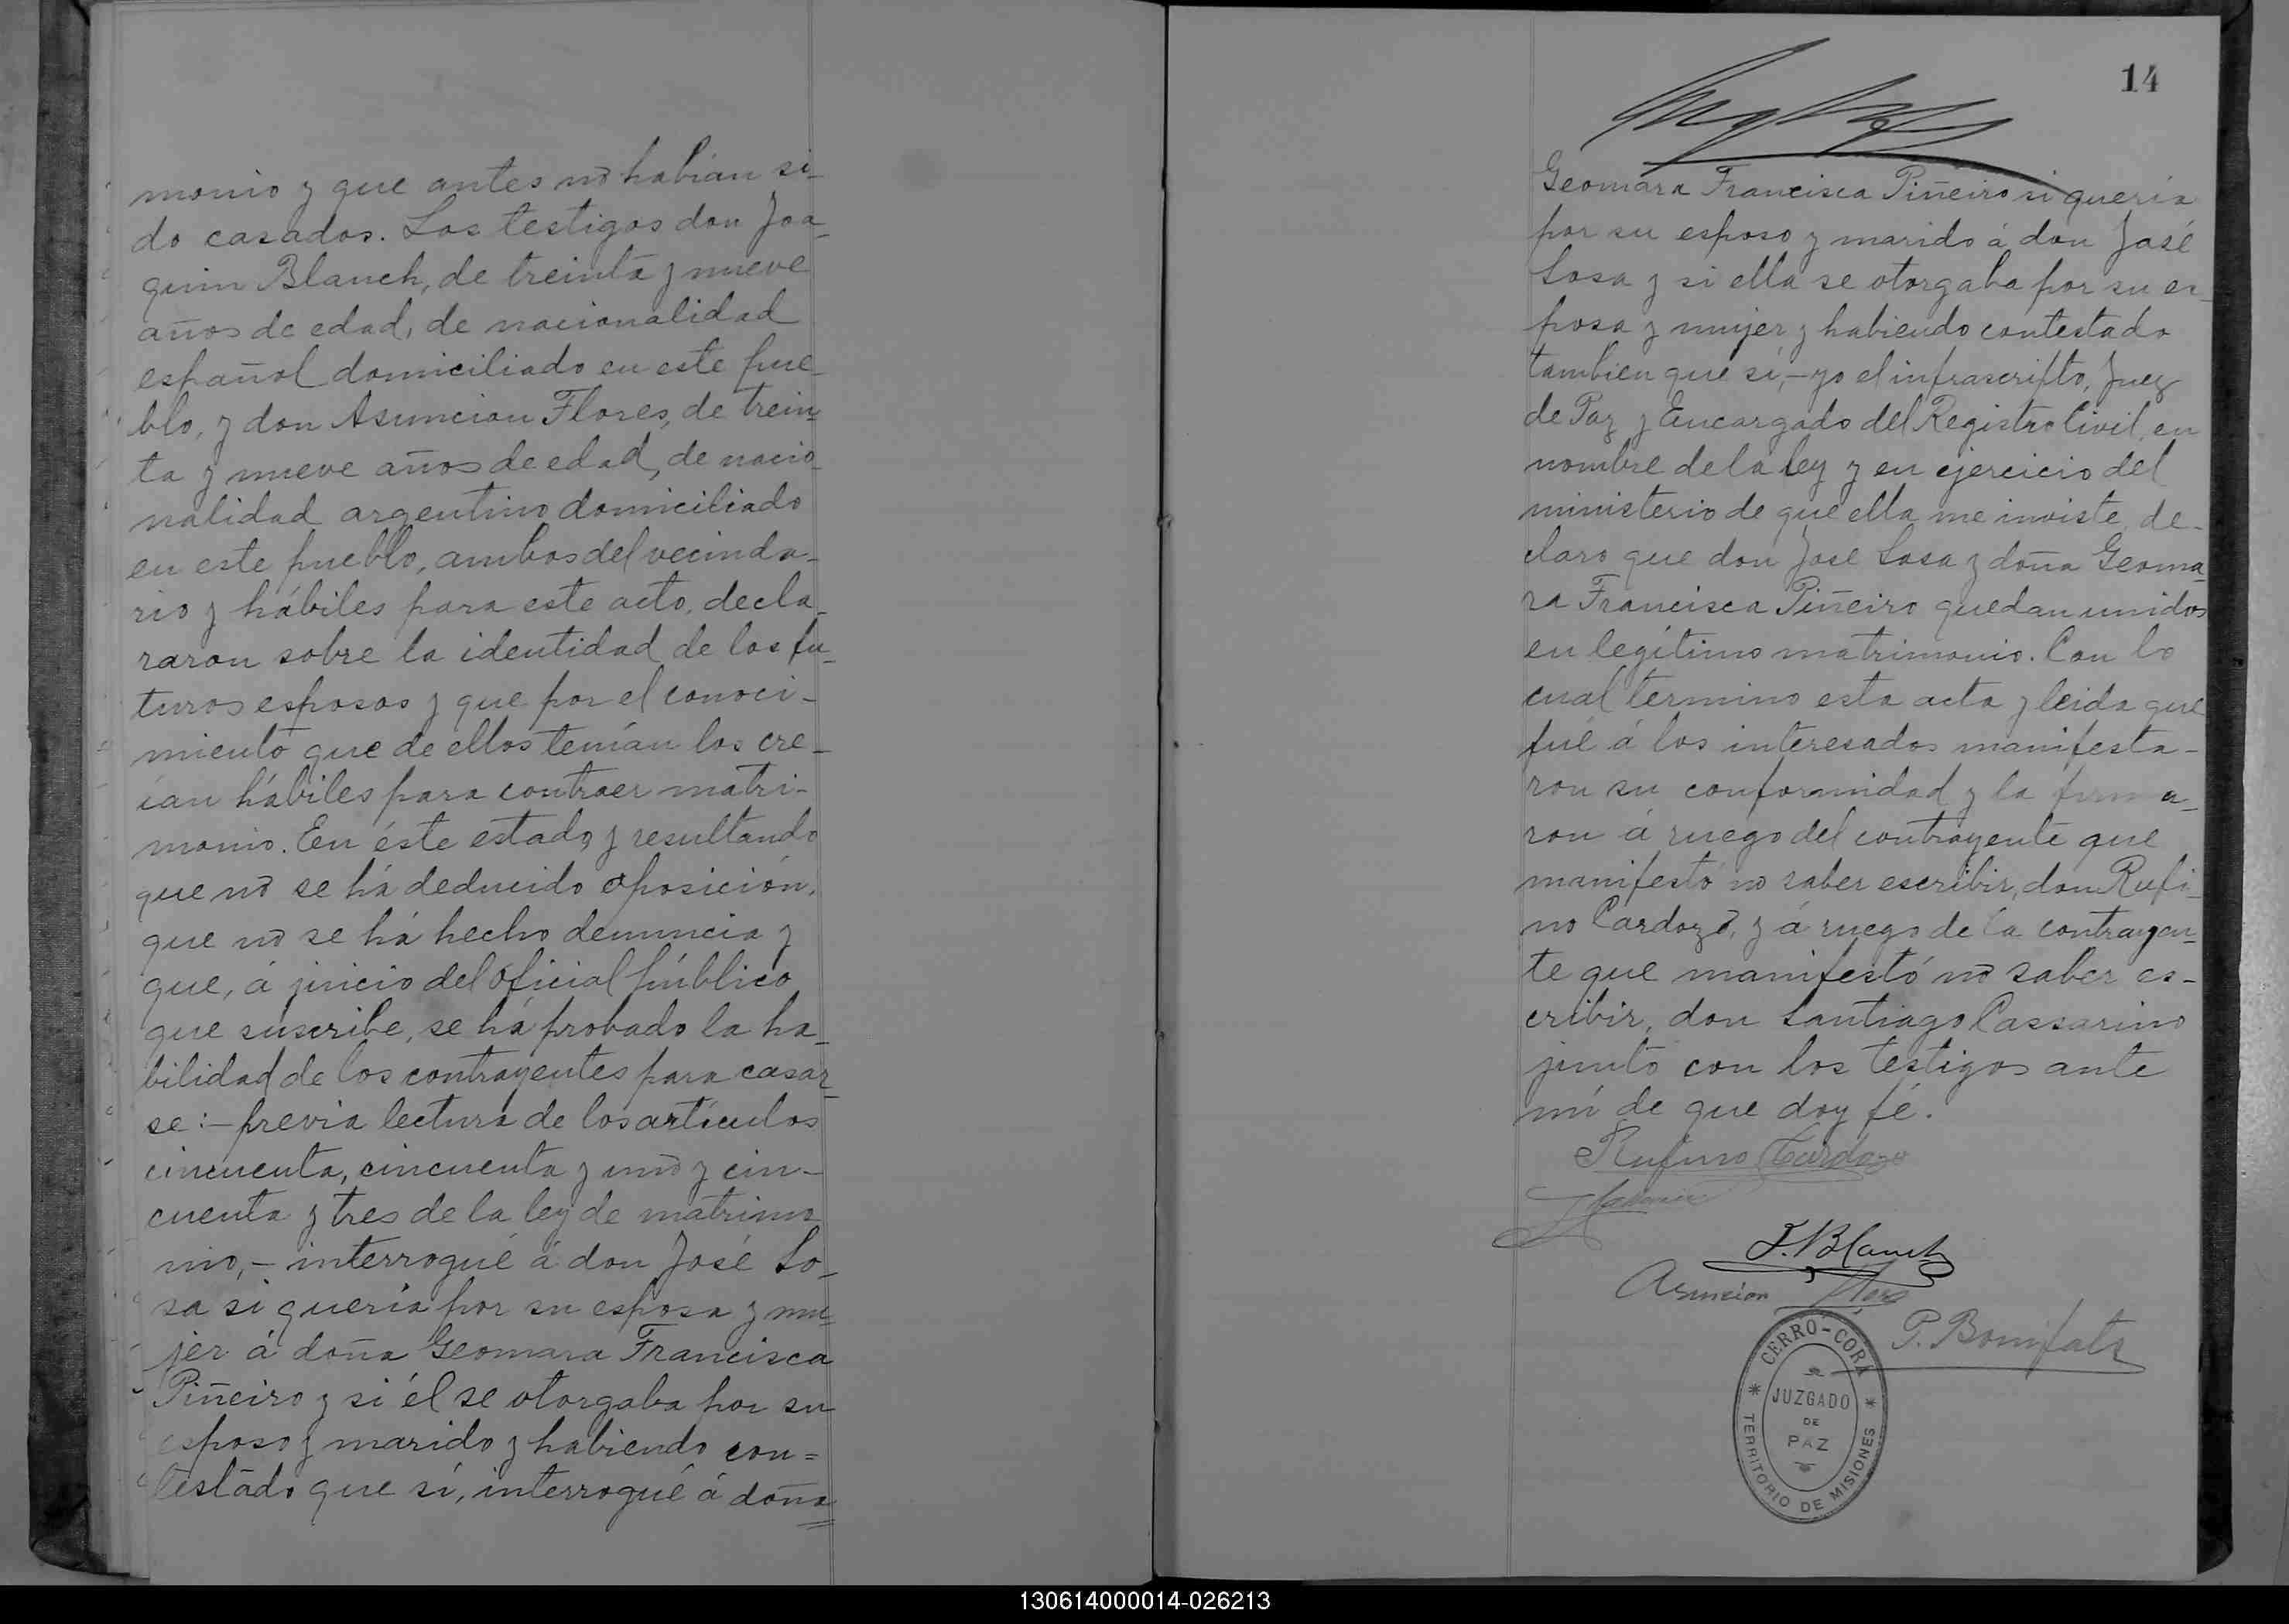 monio y que antes no habían si-
do casados. Los testigos don Joa-
quin Blanch, de treinta y nueve
años de edad, de nacionalidad
español domiciliado en este pue-
blo, y don Asuncion Flores, de trein-
ta y nueve años de edad, de nacio-
nalidad argentino domiciliado
en este pueblo, ambos del vecinda-
rio y hábiles para este acto, decla-
raron sobre la identidad de los fu-
turos esposos y que por el conoci-
miento que de ellos tenían los cre-
ían hábiles para contraer matri-
monio. En éste estado, y resultando
que no se há deducido oposición,
que no se há hecho denuncia y
que, á juicio del oficial público
que suscribe, se há probado la ha-
bilidad de los contrayentes para casar-
se:- previa lectura de los artículos
cincuenta, cincuenta y uno y cin-
cuenta y tres de la ley de matrimo-
nio,- interrogué á don José So-
sa si quería por su esposa y mu-
jer á doña Geomara Francisca
Piñeiro y si él se otorgaba por su
esposo y marido y habiendo con=
testado que sí, interrogué á doña
14
Geomara Francisca Piñeiro si quería
por su esposo y marido á don José
Sosa y si ella se otorgaba por su es-
posa y mujer y habiendo contestado
tambien que sí,- yo el infrascripto, Juez
de Paz y Encargado del Registro Civil, en
nombre de la ley y en ejercicio del
ministerio de que ella me inviste, de-
claro que don José Sosa y doña Geoma-
ra Francisca Piñeiro quedan unidos
en legítimo matrimonio. Con lo
cual termino esta acta y leida que
fué á los interesados manifesta-
ron su conformidad y la firma-
ron á ruego del contrayente que
manifestó no saber escribir, don Rufi-
no Cardozo, y á ruego de la contrayen-
te que manifestó no saber es-
cribir, don Santiago Cassarino
junto con los testigos ante
mí de que doy fé.
Rufino Cardozo
J. Blanch
Asuncion Flores
P. Bonifatz
CERRO-CORA
JUZGADO
DE
PAZ
TERRITORIO DE MISIONES
130614000014-026213